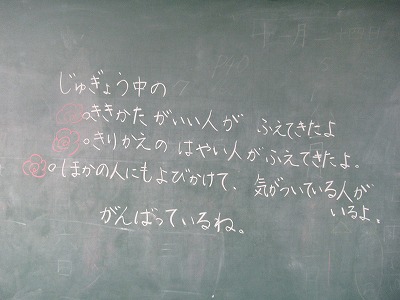 じゅぎょう中の
ききかたがいい人が ふえてきたよ
きりかえの はやい人がふえてきたよ。
ほかの人にもよびかけて、気がついている人が
いるよ。
がんばっているね。